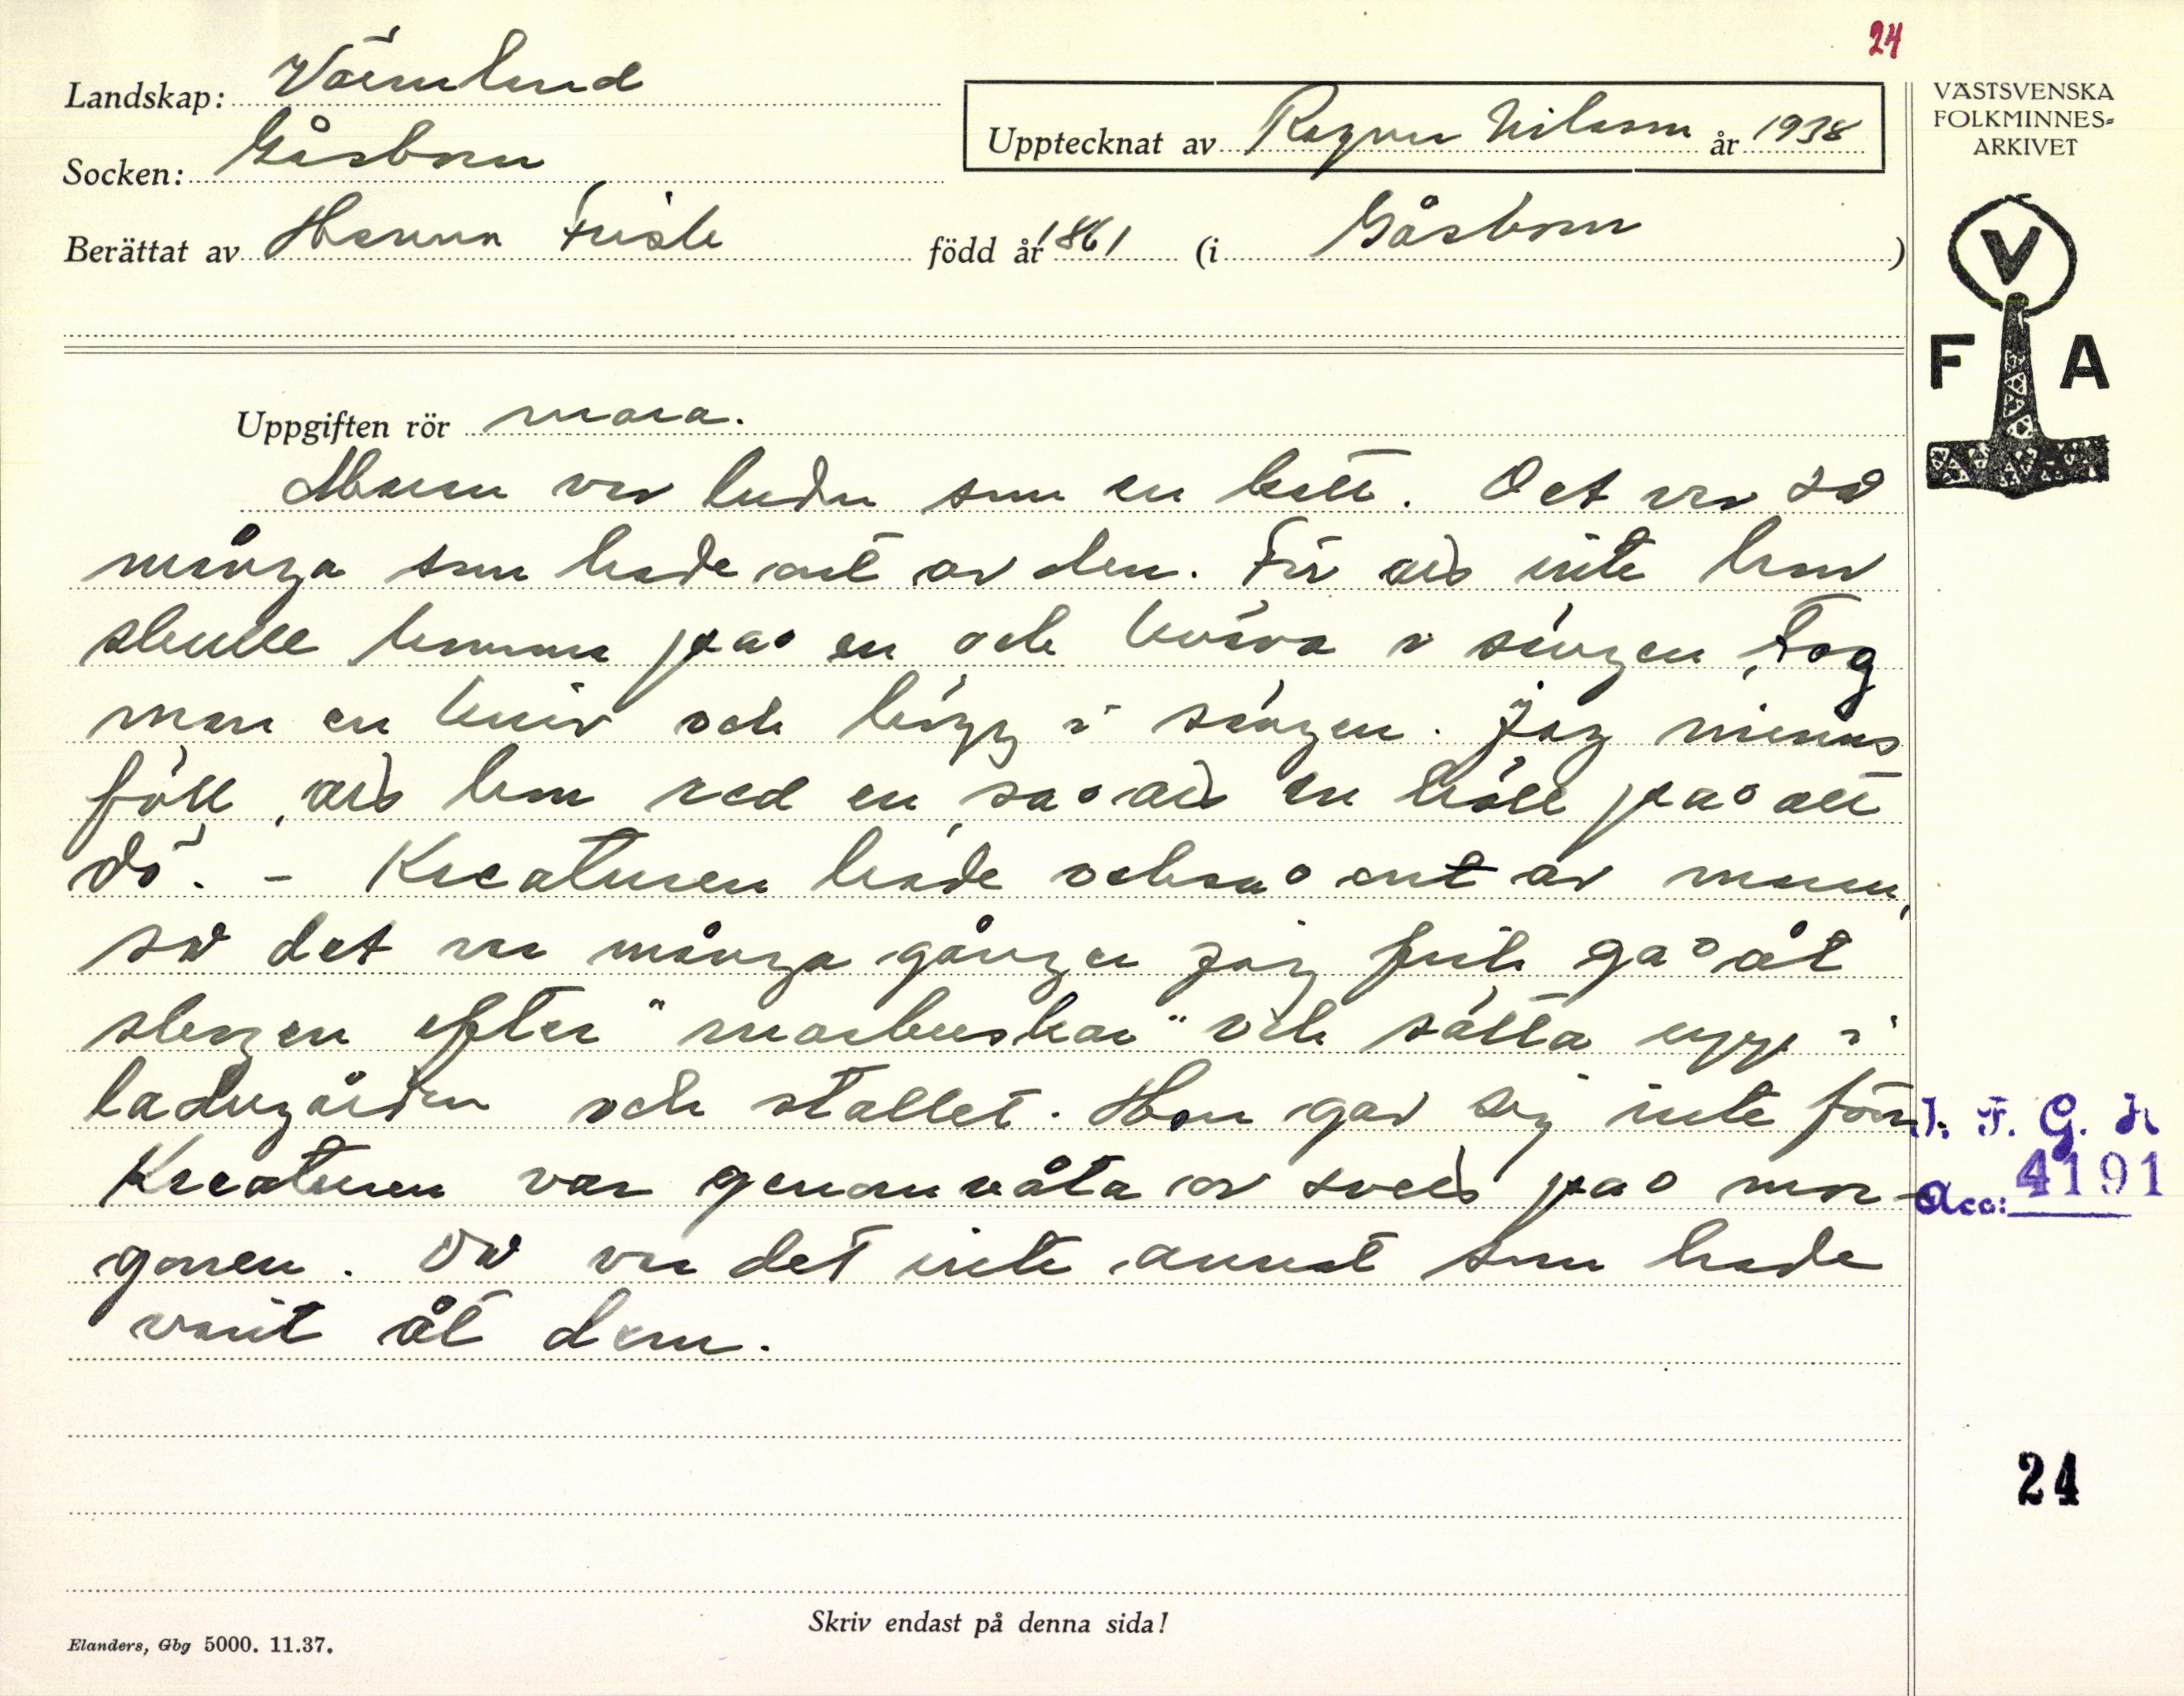 24
Landskap: Värmland
Socken: Gåsborn
Upptecknat av Ragnar Nilsson år 1938
Berättat av Hanna Frisk född år 1861 (i Gåsborn)
VÄSTSVENSKA
FOLKMINNES-
ARKIVET
V
F A
Uppgiften rör mara.
Maran var luden som en katt. Det var så
många som hade ont av den. För att inte hon
skulle komma på en och kväva i sängen, tog
man en kniv och lägg i sängen. Jag minns
föll, att hon red en, så att en höll på att
dö. - Kreaturen hade också ont av maran,
så det var många gånger jag fick gå åt
skogen efter "marbuskar" och sätta upp i
ladugården och stallet. Hon gav sig inte förr
Kreaturen var genomvåta av svett på mor-
gonen. Då var det inte annat som hade
varit åt dem.
I. F. G. H
Acc: 4191
24
Skriv endast på denna sida!
Elanders, Gbg 5000. 11.37.